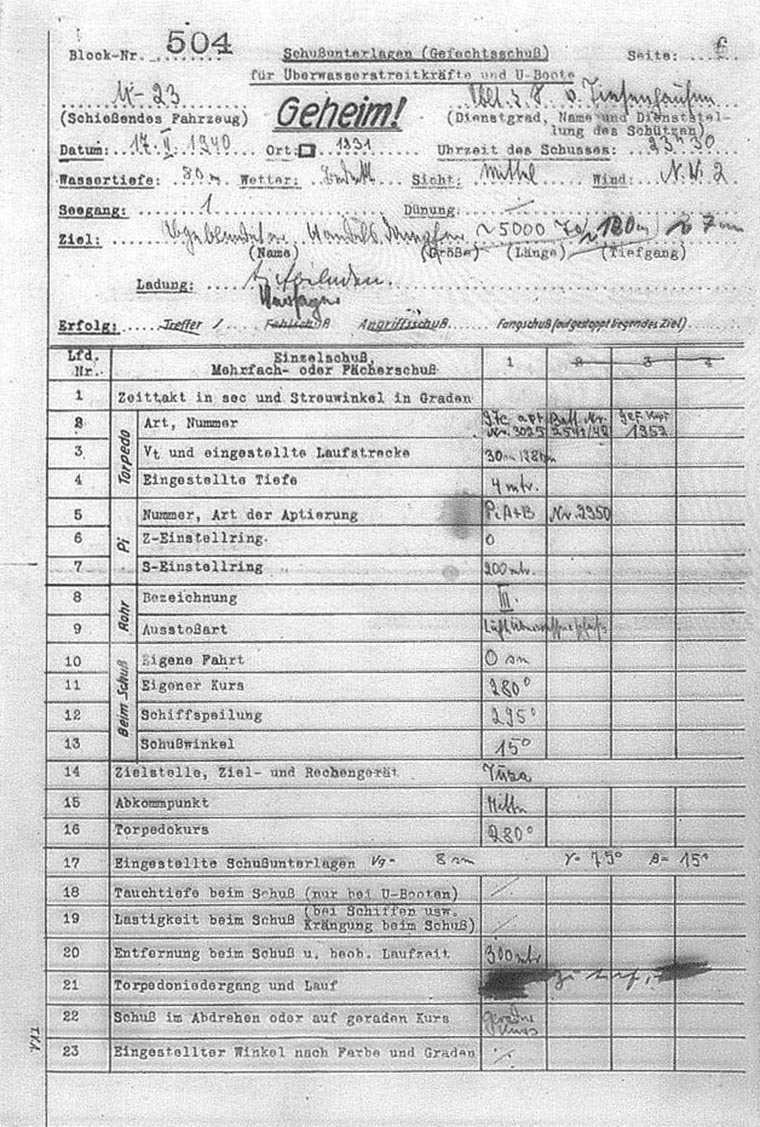 Block-Nr. 504 Schußunterlagen (Gefechtsschuß) Seite:
für Überwasserstreitkräfte und U-Boote
U-23 Geheim! v. Tiesenhausen
(Schießendes Fahrzeug) (Dienstgrad, Name und Dienststel-
lung des Schützen)
Datum: 17. II. 1940 Ort: 1331 Uhrzeit des Schusses: 23h30
Wassertiefe: 80m Wetter: Sicht: Mittel Wind: N.W. 2
Seegang: 1 Dünung: /
Ziel: ~5000 To ~120m ~7m
(Name) (Größe) (Länge) (Tiefgang)
Ladung:
Erfolg: Treffer / Fehlschuß Angriffsschuß Fangschuß (auf gestoppt liegendes Ziel)
Lfd. Nr. Einzelschuß, Mehrfach- oder Fächerschuß 1 2 3 4
1 Zeittakt in sec und Streuwinkel in Graden
Torpedo
2 Art, Nummer G7e apt Nr. 3025 Batt. Nr. 2541/42 Gef. Kopf 1952
3 Vt und eingestellte Laufstrecke 30
4 Eingestellte Tiefe 4 mtr.
Pi
5 Nummer, Art der Aptierung Pi A+B Nr. 2950
6 Z-Einstellring. 0
7 S-Einstellring 200 mtr.
Rohr
8 Bezeichnung III.
9 Ausstoßart
Beim Schuß
10 Eigene Fahrt 0 sm
11 Eigener Kurs 280°
12 Schiffspeilung 295°
13 Schußwinkel 15°
14 Zielstelle, Ziel- und Rechengerät
15 Abkommpunkt Mitte
16 Torpedokurs 280°
17 Eingestellte Schußunterlagen Vg= 8 sm γ= 75° β= 15°
18 Tauchtiefe beim Schuß (nur bei U-Booten) /
19 Lastigkeit beim Schuß (bei Schiffen usw. Krängung beim Schuß) /
20 Entfernung beim Schuß u. beob. Laufzeit 300 mtr
21 Torpedoniedergang und Lauf
22 Schuß im Abdrehen oder auf geraden Kurs gerader Kurs
23 Eingestellter Winkel nach Farbe und Graden /